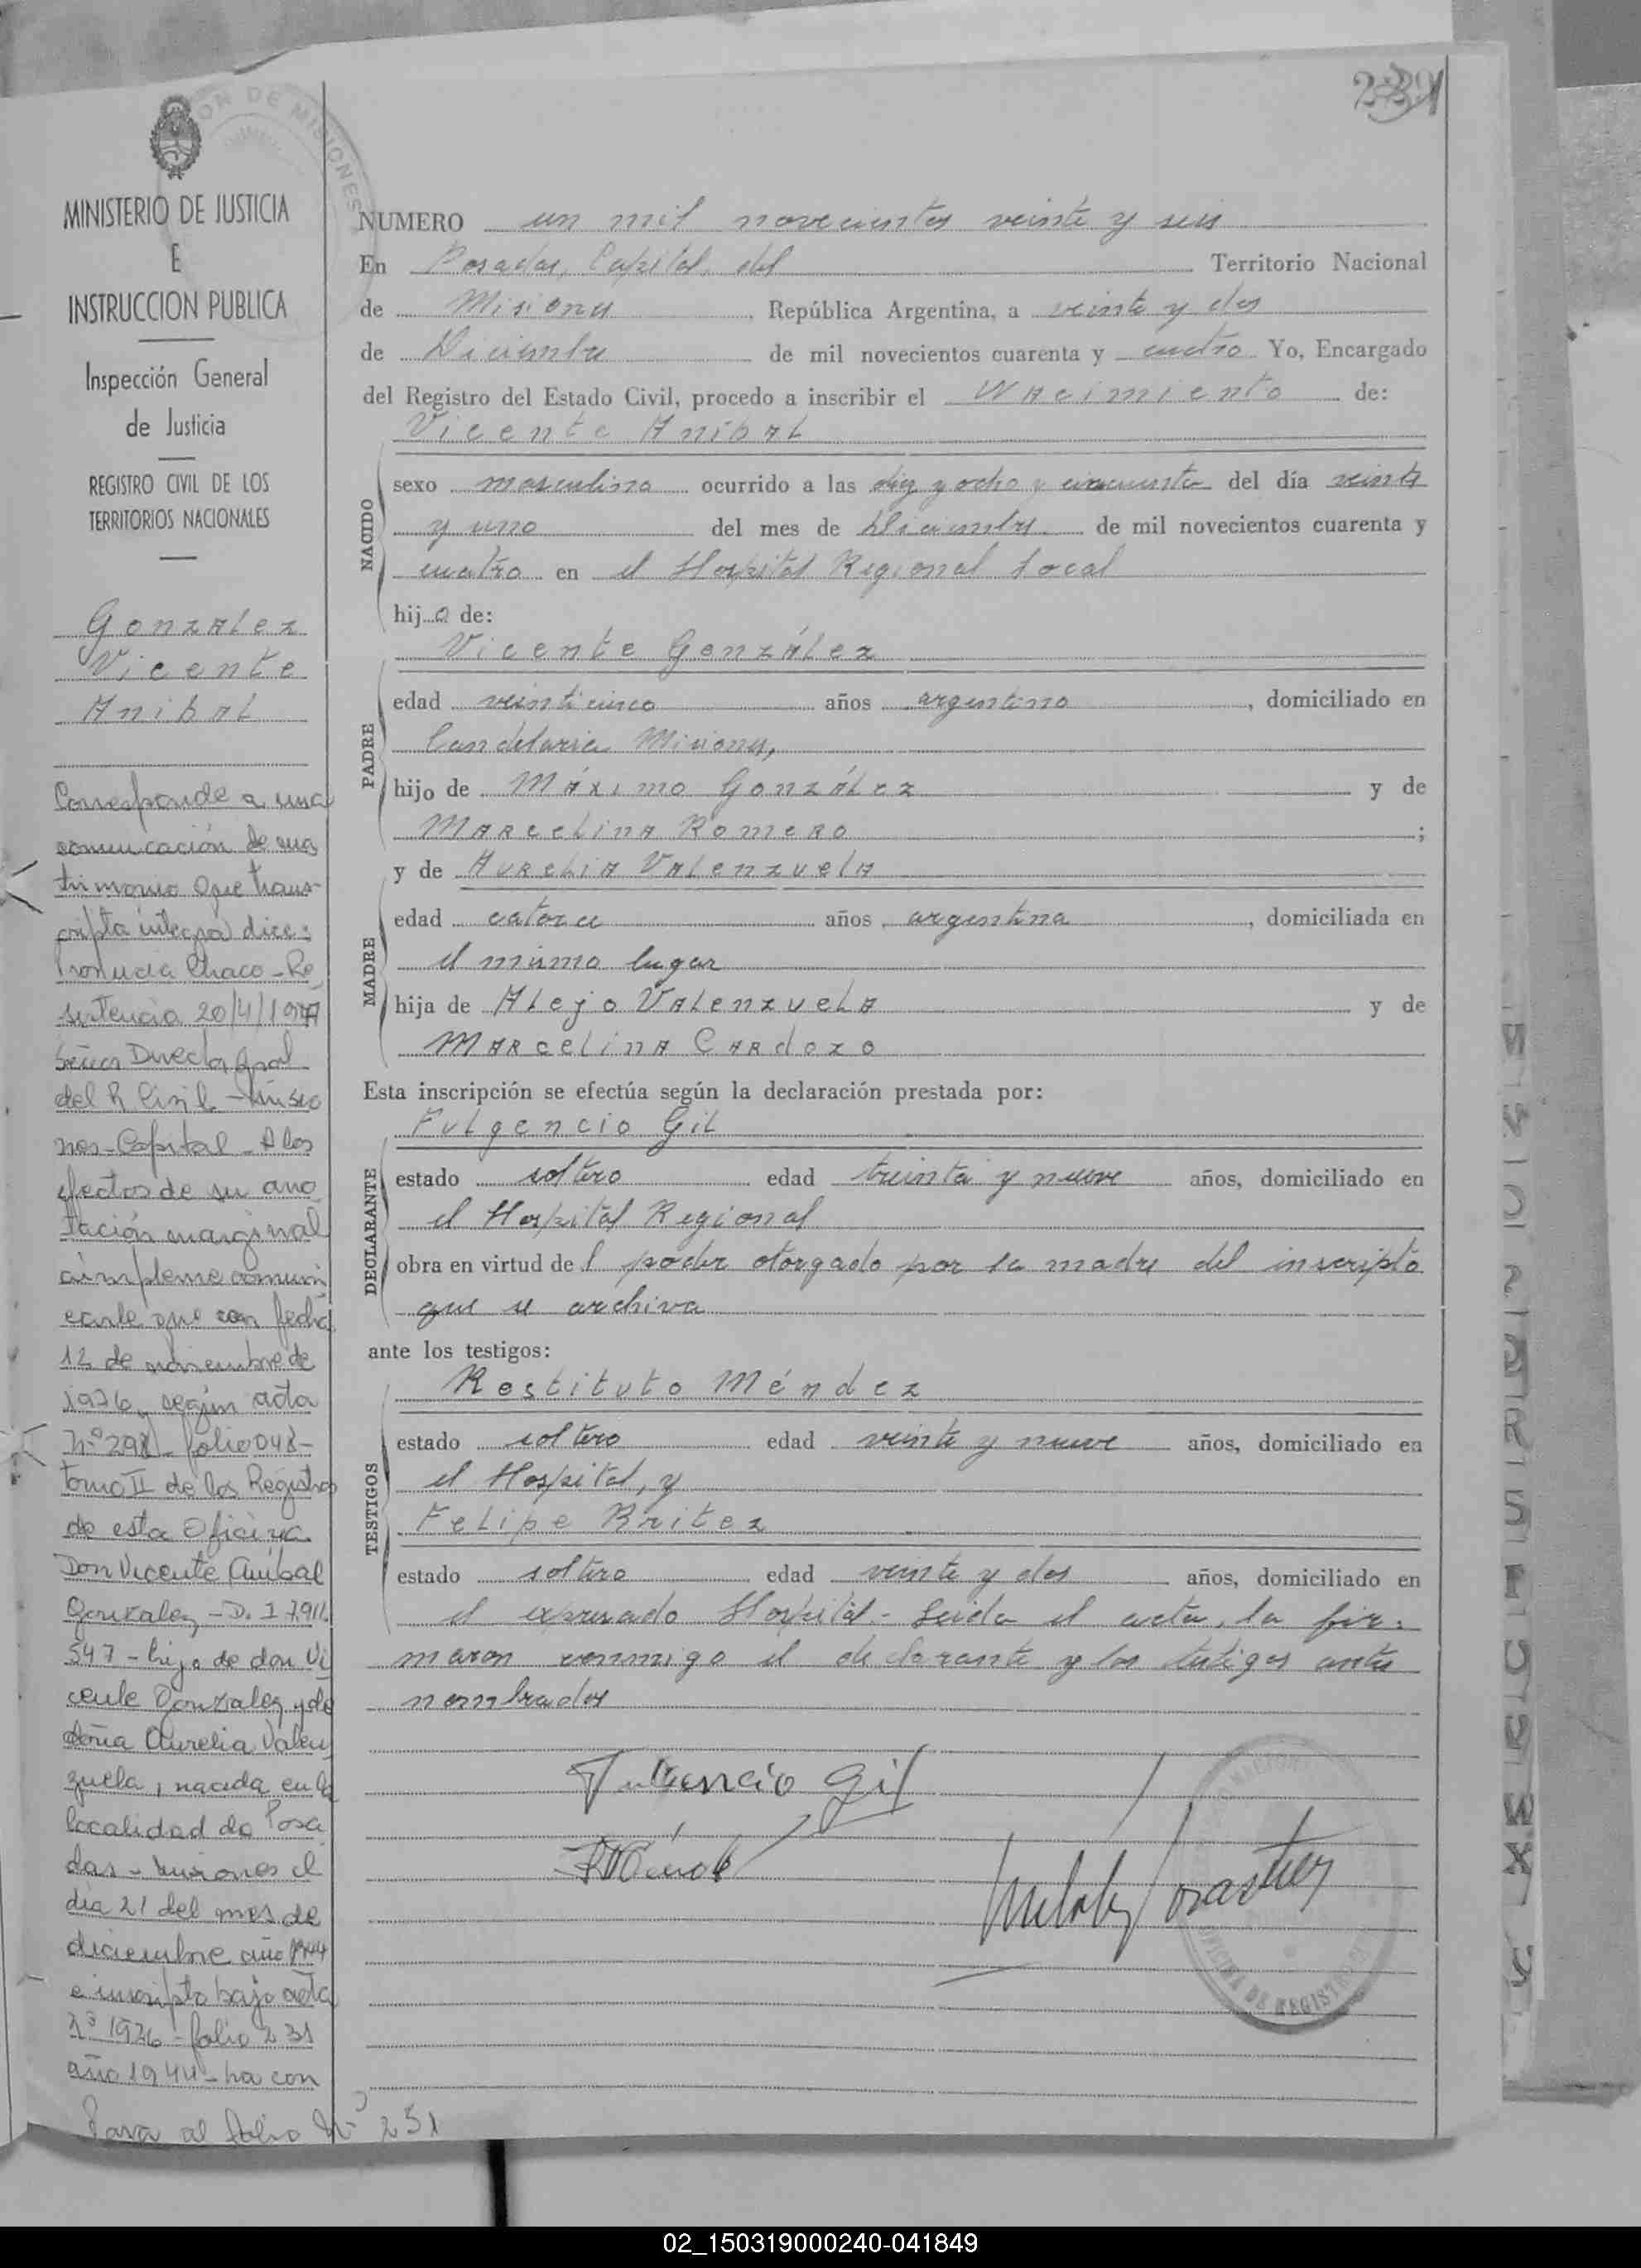 231
MINISTERIO DE JUSTICIA
E
INSTRUCCION PUBLICA
Inspección General
de Justicia
REGISTRO CIVIL DE LOS
TERRITORIOS NACIONALES
Gonzalez
Vicente
Anibal
Corresponde a una
comunicación de ma
trimonio que trans-
cripta integra dice:
Provincia Chaco - Re
sistencia 20/4/1977
Señor Director Gral
del R Civil - Misio
nes - Capital - A los
efectos de su ano
tación marginal
cúmpleme comuni
carle que con fecha
12 de noviembre de
1976, según acta
Nº 298 - folio 048 -
tomo II de los Registros
de esta Oficina
Don Vicente Anibal
Gonzalez - D. I 7.911.
547 - hijo de don Vi
cente Gonzalez y de
doña Aurelia Valen
zuela, nacida en la
localidad de Posa
das - Misiones el
día 21 del mes de
diciembre año 1944
e inscripto bajo acta
nº 1926 - folio 231
año 1944 - ha con
Pasa al folio Nº 251
NUMERO un mil novecientos veinte y seis
En Posadas, Capital del Territorio Nacional
de Misiones República Argentina, a veinte y dos
de Diciembre de mil novecientos cuarenta y cuatro Yo, Encargado
del Registro del Estado Civil, procedo a inscribir el Nacimiento de:
Vicente Anibal
NACIDO
sexo masculino ocurrido a las diez y ocho y cincuenta del día veinte
y uno del mes de Diciembre de mil novecientos cuarenta y
cuatro en el Hospital Regional local
hijo de:
Vicente González
PADRE
edad veinticinco años argentino, domiciliado en
Candelaria Misiones,
hijo de Máximo González y de
Marcelina Romero;
y de Aurelia Valenzuela
MADRE
edad catorce años, argentina, domiciliada en
el mismo lugar
hija de Alejo Valenzuela y de
Marcelina Cardozo
Esta inscripción se efectúa según la declaración prestada por:
Fulgencio Gil
DECLARANTE
estado soltero edad treinta y nueve años, domiciliado en
el Hospital Regional
obra en virtud del poder otorgado por la madre del inscripto
que se archiva
ante los testigos:
Restituto Méndez
TESTIGOS
estado soltero edad veinte y nueve años, domiciliado en
el Hospital, y
Felipe Britez
estado soltero edad veinte y dos años, domiciliado en
el expresado Hospital.- Leída el acta, la fir-
maron conmigo el declarante y los testigos ante
nombrados
Fulgencio Gil
OFICINA DE REGISTRO
02_150319000240-041849